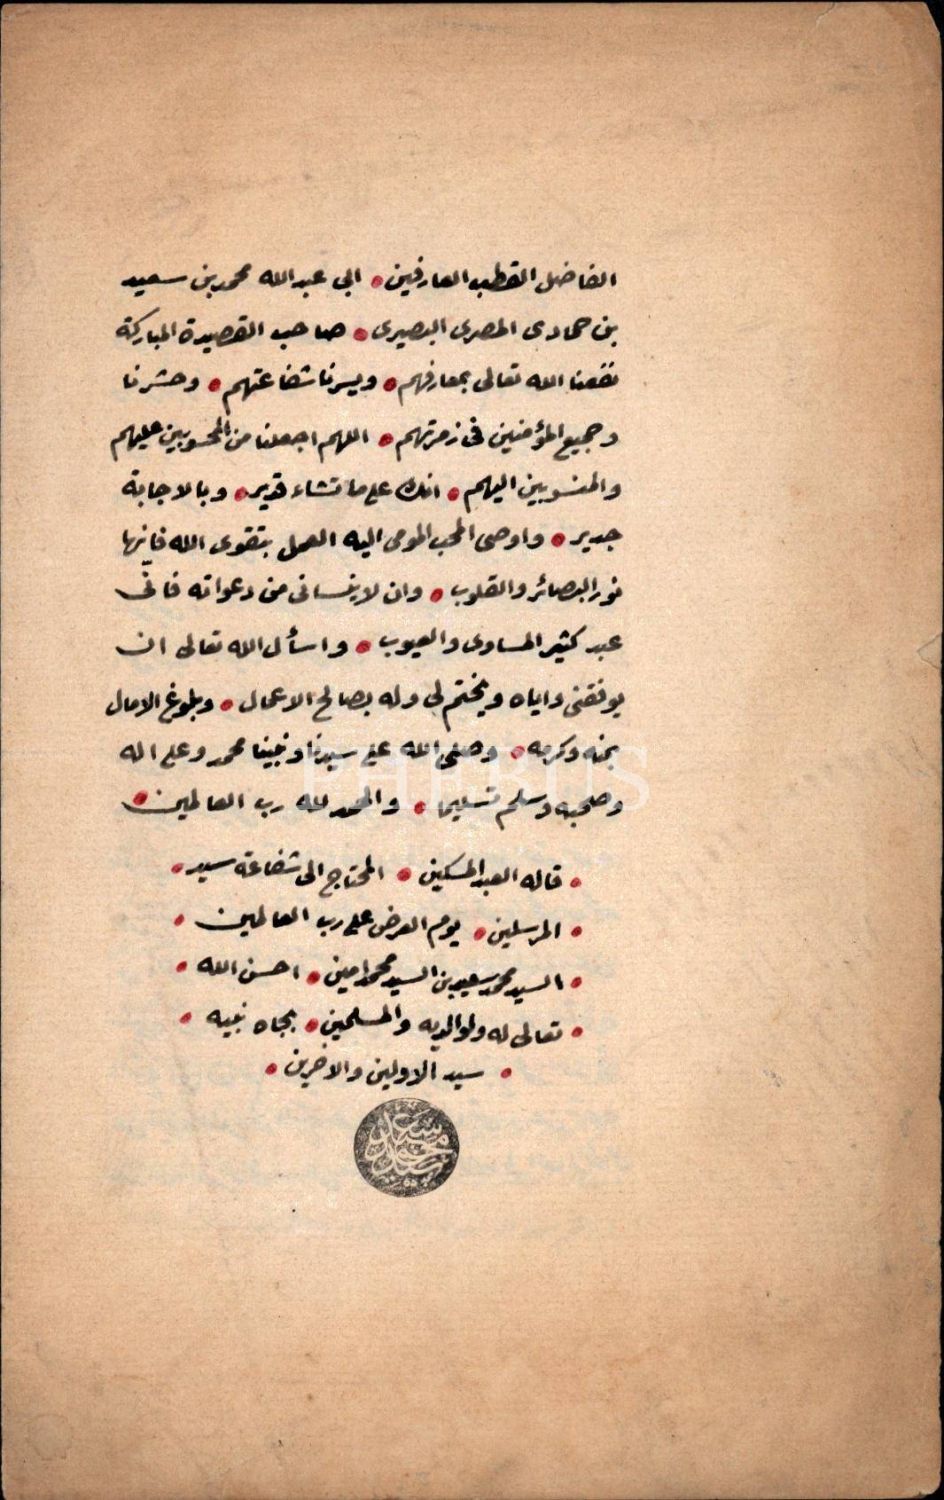 الفاضل القطب العارفين • ابى عبد الله محمد بن سعيد
بن حمادى المصرى البصيرى • صاحب القصيدة المباركة
نفعنا الله تعالى بمعارفهم • ويسرنا شفاعتهم • وحشرنا
وجميع المؤمنين فى زمرتهم • اللهم اجعلنا من المحسوبين عليهم
والمنسوبين اليهم • انك على ما تشاء قدير • وبالاجابة
جدير • واوصى المحب المومى اليه العمل بتقوى الله فانها
نور البصائر والقلوب • وان لا ينسانى من دعواته فانى
عبد كثير المساوى والعيوب • واسأل الله تعالى ان
يوفقنى واياه ويختم لى وله بصالح الاعمال • وبلوغ الامال
بمنه وكرمه • وصلى الله على سيدنا ونبينا محمد وعلى اله
وصحبه وسلم تسليما • والحمد لله رب العالمين •
• قاله العبد المسكين • المحتاج الى شفاعة سيد •
• المرسلين • يوم العرض على رب العالمين •
• السيد محمد سعيد بن السيد محمد امين • احسن الله •
• تعالى له ولوالديه والمسلمين • بجاه نبيه •
• سيد الاولين والاخرين •
PHEBUS